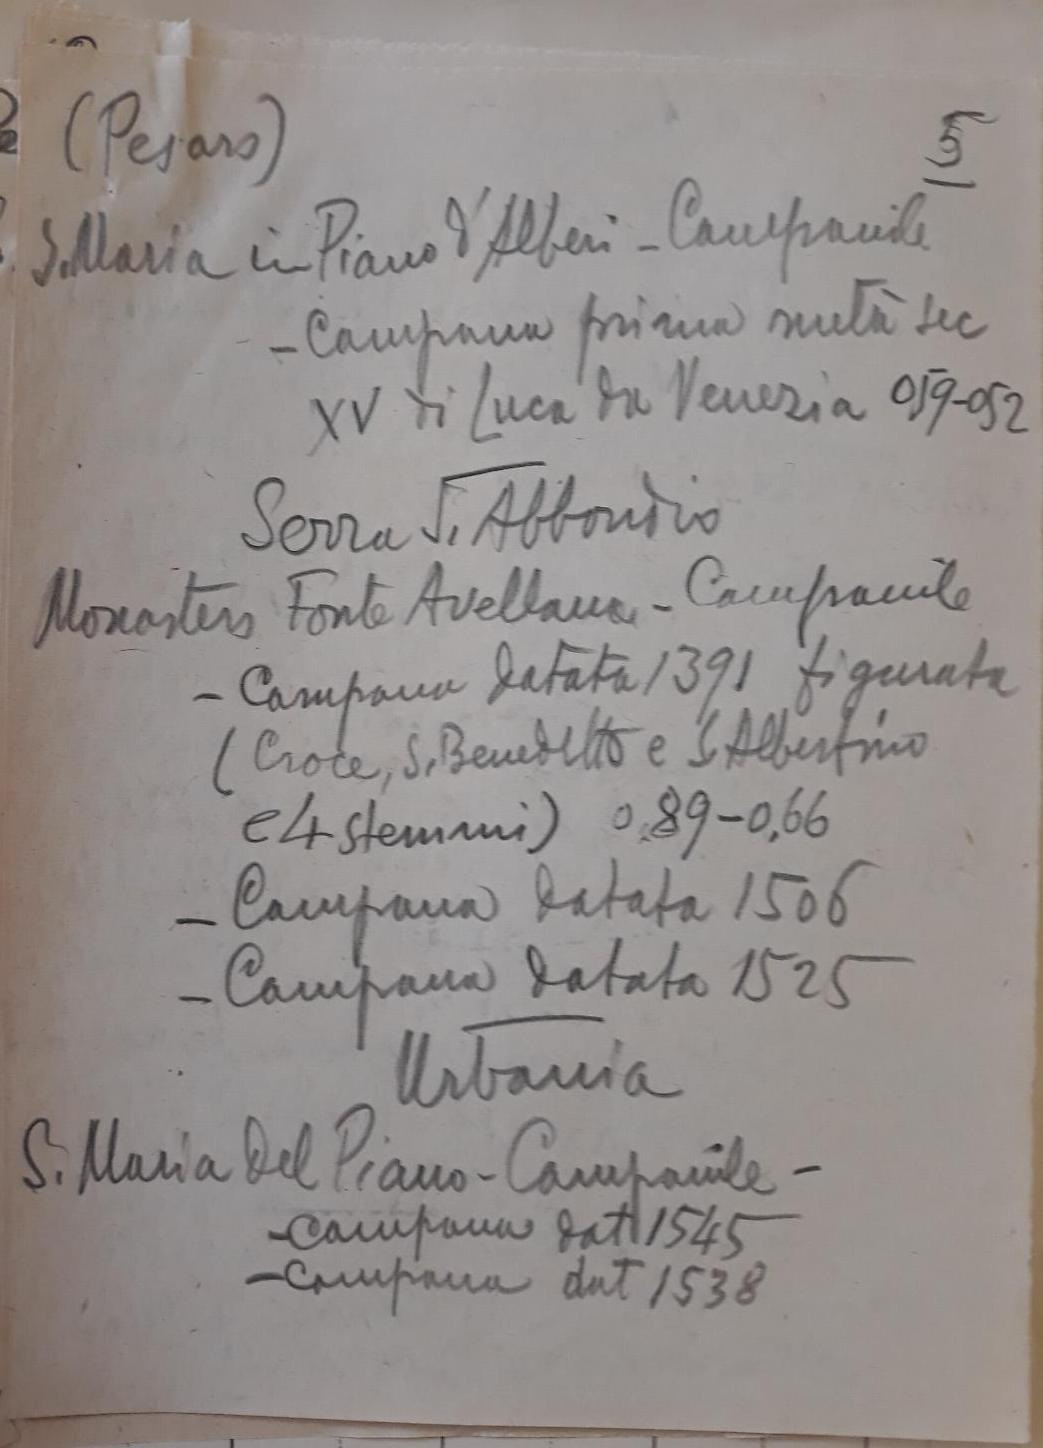 (Pesaro) 5
S. Maria in Piano d'Alberi - Campanile
- Campana prima metà sec
XV di Luca da Venezia 059-052
Serra S. Abbondio
Monastero Fonte Avellana - Campanile
- Campana datata 1391 figurata
(Croce, S. Benedetto e S. Albertino
e 4 stemmi) 0.89-0,66
- Campana datata 1506
- Campana datata 1525
Urbania
S. Maria del Piano - Campanile -
- campana dat 1545
- campana dat 1538